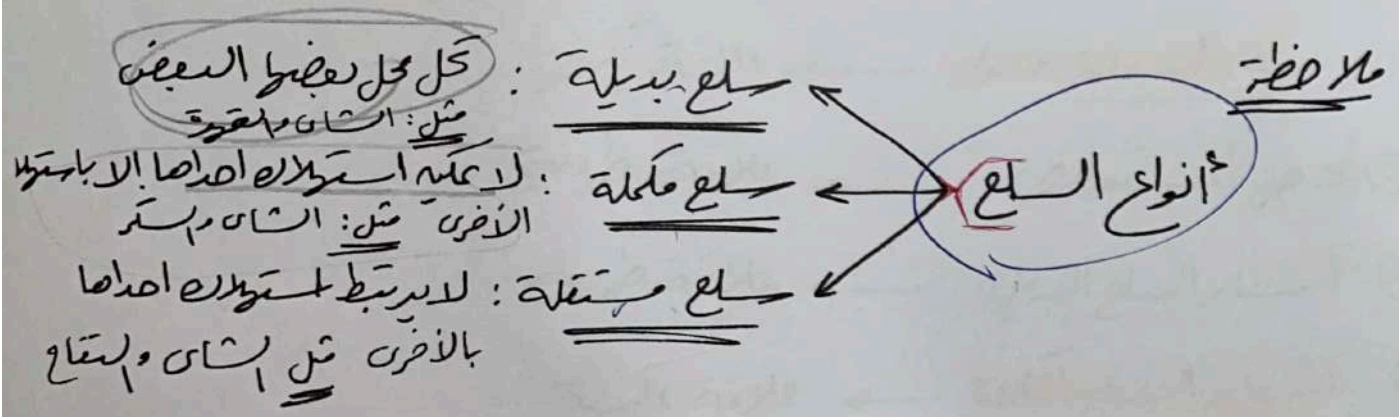 ملاحظة
أنواع السلع
سلع بديلة : تحل محل بعضها البعض
مثل: الشاى والقهوة
سلع مكملة : لا يمكن استهلاك احداها إلا باستهلا
الأخرى مثل: الشاى والسكر
سلع مستقلة : لا يرتبط استهلاك احداها
بالأخرى مثل الشاى والتفاح